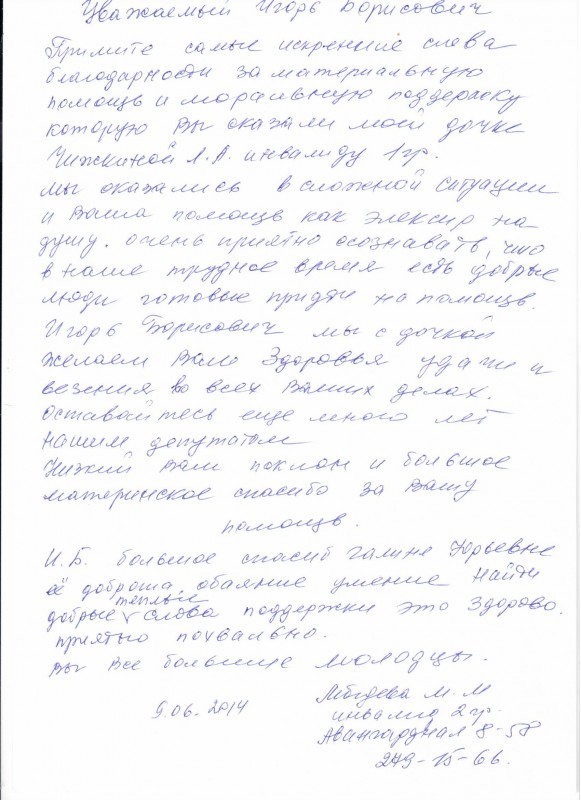 Уважаемый Игорь Борисович
Примите самые искренние слова
благодарности за материальную
помощь и моральную поддержку
которую Вы оказали моей дочке
Чижкиной Л.А. инвалиду 1 гр.
мы оказались в сложной ситуации
и Ваша помощь как элексир на
душу. очень приятно осознавать, что
в наше трудное время есть добрые
люди готовые придти на помощь.
Игорь Борисович мы с дочкой
желаем Вам Здоровья удачи и
везения во всех Ваших делах.
оставайтесь еще много лет
нашим депутатом
Низкий Вам поклон и большое
материнское спасибо за Вашу
помощь.
И.Б. большое спасиб Галине Юрьевне
её доброта обаяние умение найти
добрые теплые слова поддержки это здорово.
приятно похвально.
Вы все большие молодцы.
9.06.2014
Лебедева М.М
инвалид 2 гр.
Авангардная 8-58
249-15-66.